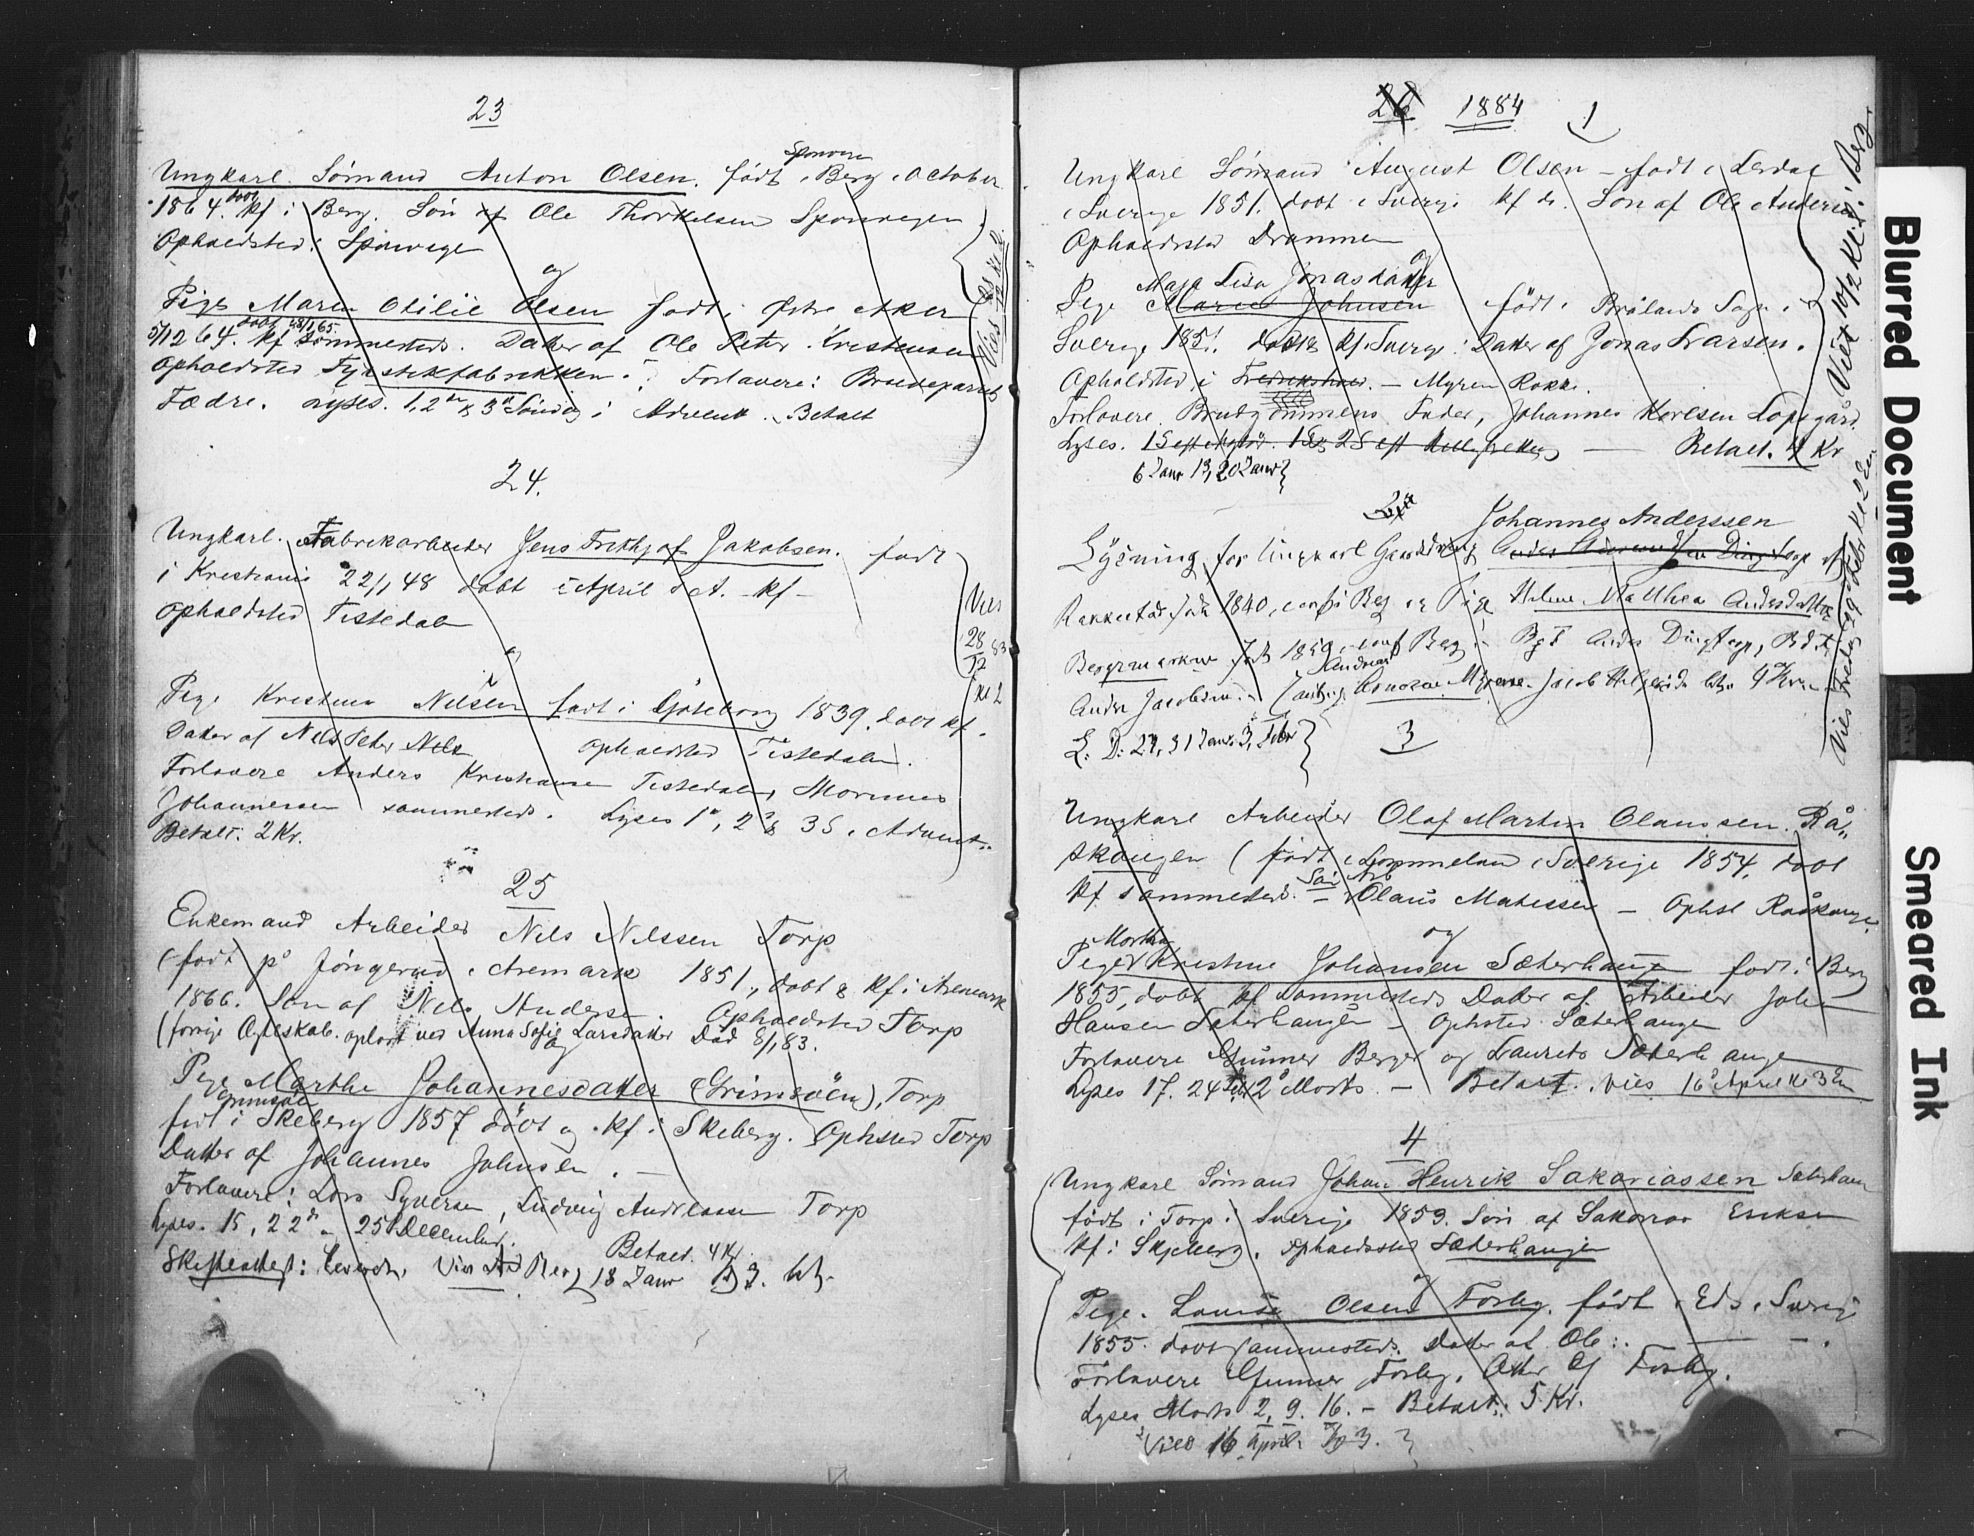 23
Ungkarl. Sømand Anton Olsen. født i Berg i October
Sponvre
1864. døbt kf i Berg. Søn af Ole Thorkelsen Sponvegen
Opholdsted: Sponvege
og
Pige Maren Otilie Olsen født i Østre Aker
5/12 64. døbt 28/1 65. kf sammesteds. Datter af Ole Peter Kristensen
Opholdsted Fyrstikfabrikken. Forlovere: Brudeparets
Fædre. Lyses. 1, 2den & 3die Søndag i Advent. Betalt
Vies
24.
Ungkarl. Fabrikarbeider Jens Frithjof Jakobsen. født
i Kristiania 22/1 48 døbt i April s. A. - kf -
Opholdsted Tistedalen
og
Pige Kristina Nilsen født i Göteborg 1839. døbt kf.
Datter af Nils Peter Nils Opholdsted Tistedalen.
Forlovere Anders Kristiansen Tistedalen, Morinus
Johannesen sammesteds. Lyses 1, 2 & 3 S. i Advent.
Betalt. 2 Kr.
Vies
28/12 83
kl 2
25
Enkemand Arbeider Nils Nilssen Torp
(født på Jöngerud i Aremark 1851, døbt & kf i Aremark
1866. Søn af Nils Anders. Opholdsted Torp
(forrige Ægteskab opløst ved Anna Sofie Larsdatter Död 8/1 83.
og
Pige Marthe Johannesdatter (Grimsöen), Torp
Grimsöe
født i Skeberg 1857 döbt og kf i Skeberg. Ophsted Torp
Datter af Johannes Johnsen. —
Forlovere: Lars Syversen, Ludvig Andreassen Torp
Lyses. 15, 22de, 25 December.
Betalt. 4 Kr.
Skifteattest: Viet Berg 18 Janr
26 1884 1
Ungkarl Sømand August Olsen - født i Lerdal
i Sverige 1851. døbt i Sverige kf do. Søn af Ole Andersen
Opholdsted Drammen
og
Maja Lisa Jonasdatter
Pige Maria Johnsen født i Brålands Sogn i
Sverige 1851. døbt & kf i Sverige. Datter af Jonas Larsen.
Opholdsted i Fredrikshald. - Myren Rokke.
Forlovere Brudgommens Fader, Johannes Karlsen Lopsgård.
Lyses. — Betalt. 4 Kr
6 Janr 13, 20 Janr
Viet 10/2 kl. i Berg.
Johannes Anderssen
Lysning for Ungkarl Gaardbruger
født 1840, conf i Berg og Pige Helene Mathea Andersdatter
født 1859, conf Berg.
Andreas
Andr Jacobsen.
L. D: 27, 31 Janr 3 Febr
3
Ungkarl Arbeider Olaf Martin Olaussen. Rå-
skougen (født i Lommeland i Sverige 1854, døbt
kf sammesteds. — Olaus Matissen — Ophst Råskougen
og
Martha
Pige Kristine Johansen Sæterhaugen født i Berg
1855, døbt kf sammesteds Datter af Arbeider Johan
Hansen Sæterhaugen - Ophsted Sæterhaugen
Forlovere Gunner Berger og Laurits Sæterhaugen
Lyses 17. 24 Febr 2 Marts. — Betalt. Vies 16 April kl 3 Em
4
Ungkarl Sømand Johan Henrik Sakariassen Sæterhaugen
født i Torp i Sverige 1859. Søn af Sakarias Eriksen
kf i Skjeberg. Opholdssted Sæterhaugen
og
Pige. Lovise Olsen Fosby. født i Eds, Sverige
1855. døbt sammesteds. Datter af Ole: —
Forlovere Gunner Fosby, Otter af Fosby.
Lyses Marts 2, 9. 16. — Betalt. 5 Kr.
Vies 16 April
Blurred Document
Smeared Ink